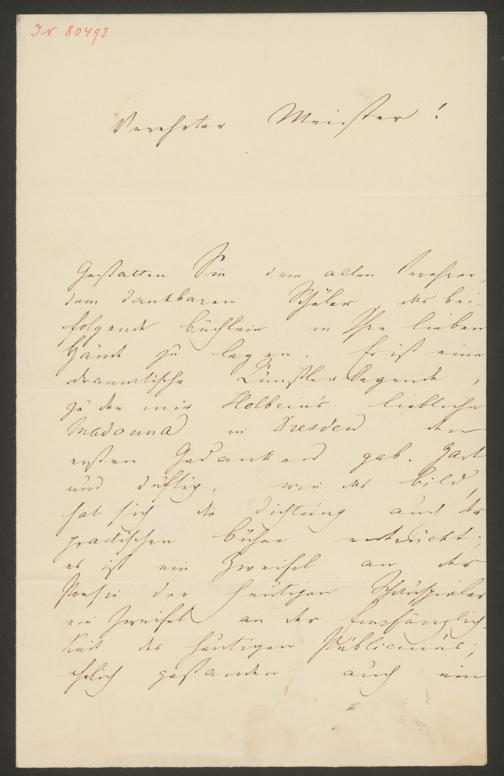 IN 80493
Verehrter Meister!
Gestatten Sie dem alten Verehrer,
dem dankbaren Schüler, das bei-
folgende Büchlein in Ihre lieben
Hände zu legen. Es ist eine
dramatische Künstlerlegende,
zu der mir Holbein's liebliche
Madonna in Dresden den
ersten Gedanken gab. Zart
und duftig, wie das Bild,
hat sich die Dichtung auch der
practischen Bühne entrückt;
es ist ein Zweifel an der
Poesie der heutigen Schauspieler
ein Zweifel an der Empfänglich-
keit des heutigen Publicums;
ehrlich gestanden auch ein